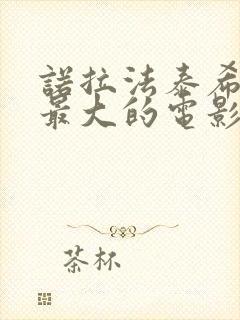 諾拉法泰希
最大的電影
茶杯